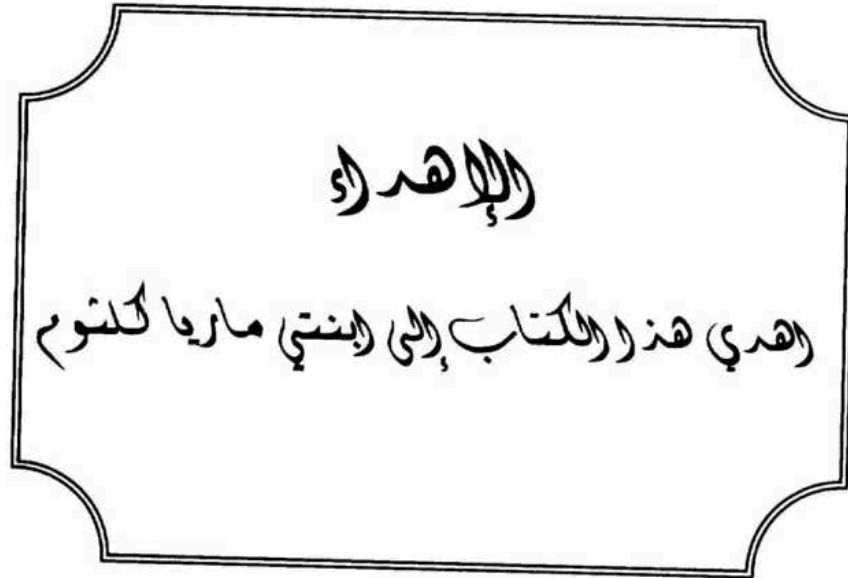 الإهداء
اهدي هذا الكتاب إلى ابنتي ماريا كلثوم